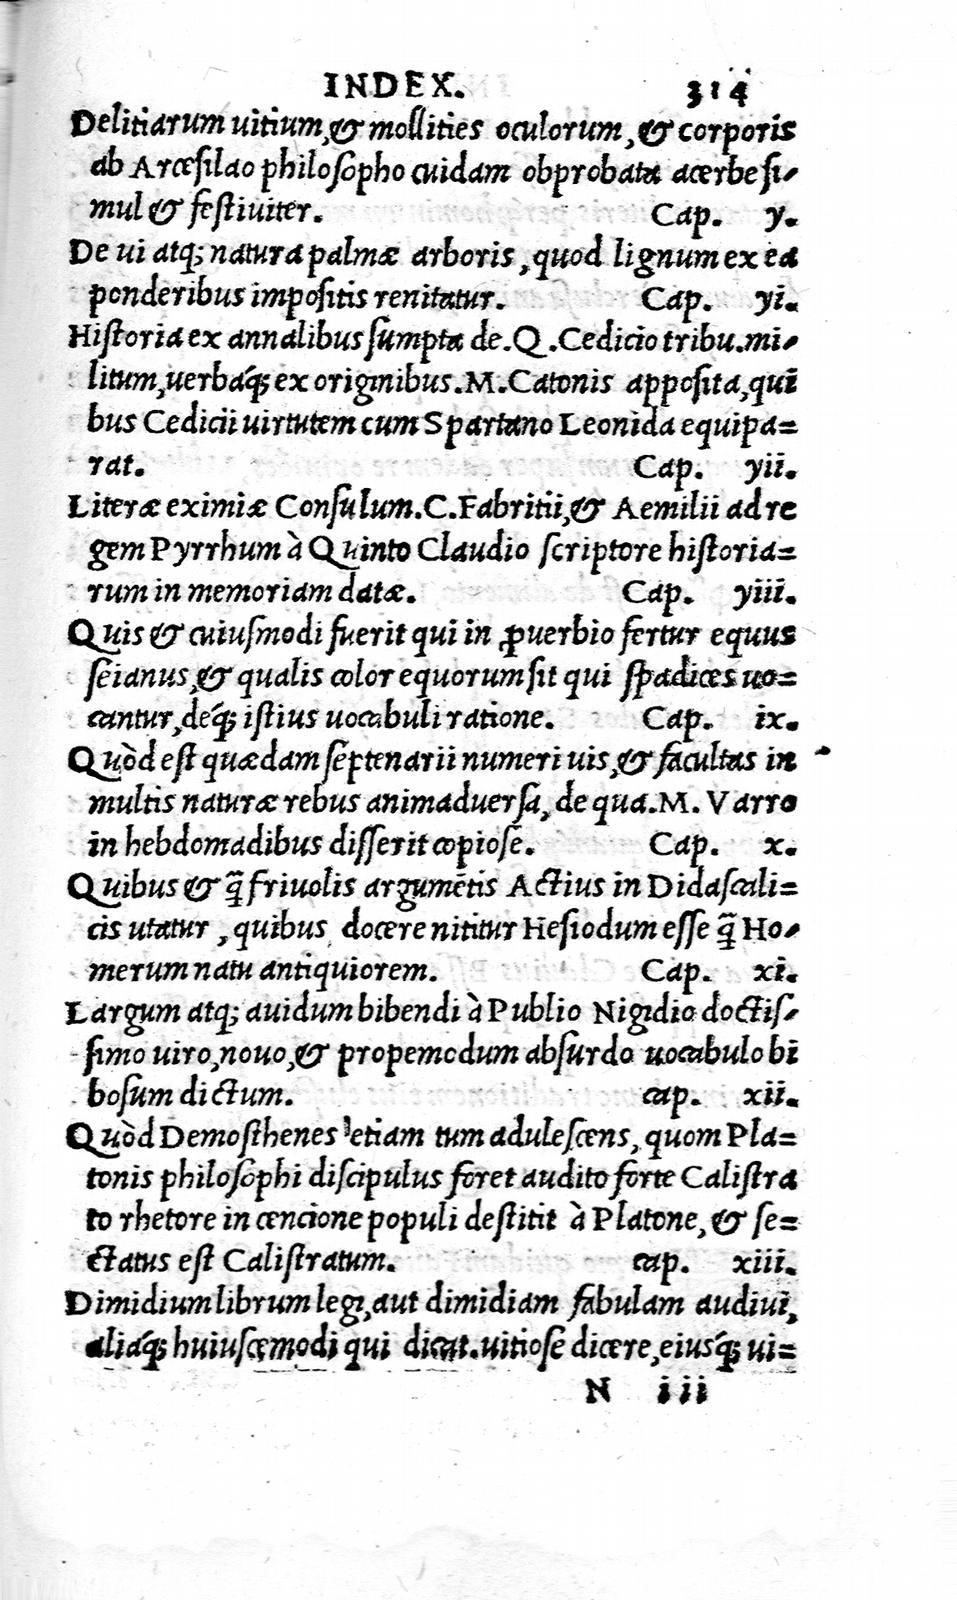 INDEX. 314
Delitiarum uitium,& mollities oculorum,& corporis
ab Arcesilao philosopho cuidam obprobata acerbe si-
mul & festiuiter. Cap. y.
De ui atq; natura palmæ arboris, quod lignum ex ea
ponderibus impositis renitatur. Cap. yi.
Historia ex annalibus sumpta de.Q.Cedicio tribu.mi-
litum,uerbaq́; ex originibus.M.Catonis apposita,qui
bus Cedicii uirtutem cum Spartano Leonida equipa=
rat. Cap. yii.
Literæ eximiæ Consulum.C.Fabritii,& Aemilii ad re
gem Pyrrhum à Quinto Claudio scriptore historia=
rum in memoriam datæ. Cap. yiii.
Quis & cuiusmodi fuerit qui in ꝓuerbio fertur equus
seianus,& qualis color equorum sit qui spadices uo=
cantur,deq́; istius uocabuli ratione. Cap. ix.
Quòd est quædam septenarii numeri uis,& facultas in
multis naturæ rebus animaduersa, de qua.M.Varro
in hebdomadibus disserit copiose. Cap. x.
Quibus & q̃ friuolis argumētis Actius in Didascali=
cis utatur, quibus docere nititur Hesiodum esse q̃ Ho-
merum natu antiquiorem. Cap. xi.
Largum atq; auidum bibendi à Publio Nigidio doctis-
simo uiro,nouo,& propemodum absurdo uocabulo bi
bosum dictum. cap. xii.
Quòd Demosthenes etiam tum adulescens, quom Pla=
tonis philosophi discipulus foret audito forte Calistra
to rhetore in concione populi destitit à Platone,& se=
ctatus est Calistratum. cap. xiii.
Dimidium librum legi,aut dimidiam fabulam audiui,
aliaq́; huiuscemodi qui dicat.uitiose dicere,eiusq́; ui=
N iii